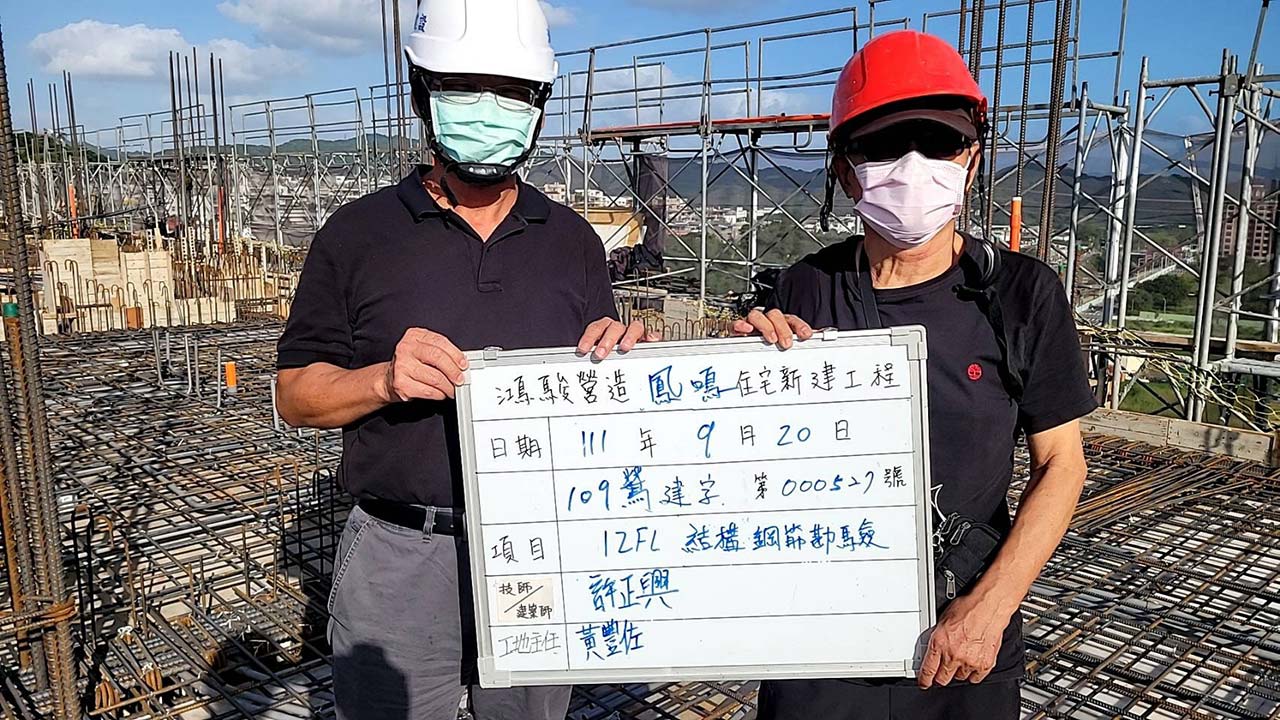 鴻駿營造 鳳鳴住宅新建工程
日期 111 年 9 月 20 日
109鶯建字 第000527號
項目 12FL 結構鋼筋勘驗
技師/建築師 許正興
工地主任 黃豐佐